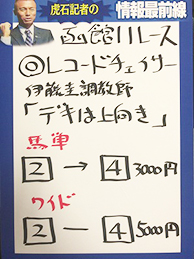 虎石記者の
情報最前線
函館11レース
◎レコードチェイサー
伊藤圭調教師
「デキは上向き」
馬単
2→4 3000円
ワイド
2－4 5000円